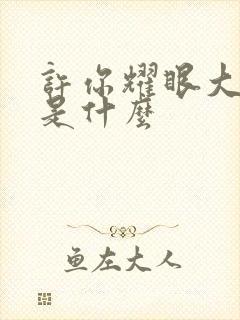 許你耀眼大
是什麼
鱼左大人